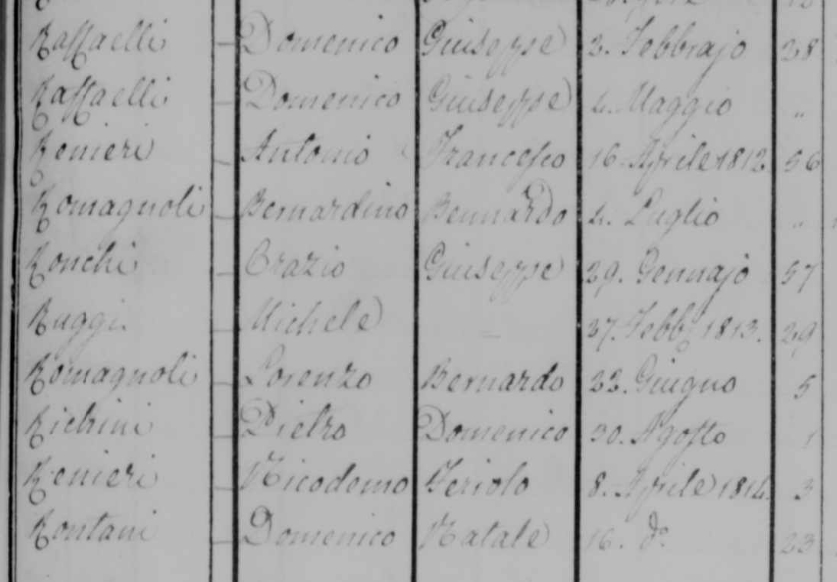 Raffaelli Domenico Giuseppe 2. Febbrajo 28
Raffaelli Domenico Giuseppe 4. Maggio "
Renieri Antonio Francesco 16. Aprile 1812 56
Romagnoli Bernardino Bennardo 4. Luglio "
Ronchi Orazio Giuseppe 29. Gennajo 57
Ruggi Michele 27. Febb. 1813. 29
Romagnoli Lorenzo Bernardo 22. Giugno 5
Richini Pietro Domenico 30. Agosto 1
Renieri Nicodemo Feriolo 8. Aprile 1814. 3
Rontani Domenico Natale 16. do. 23